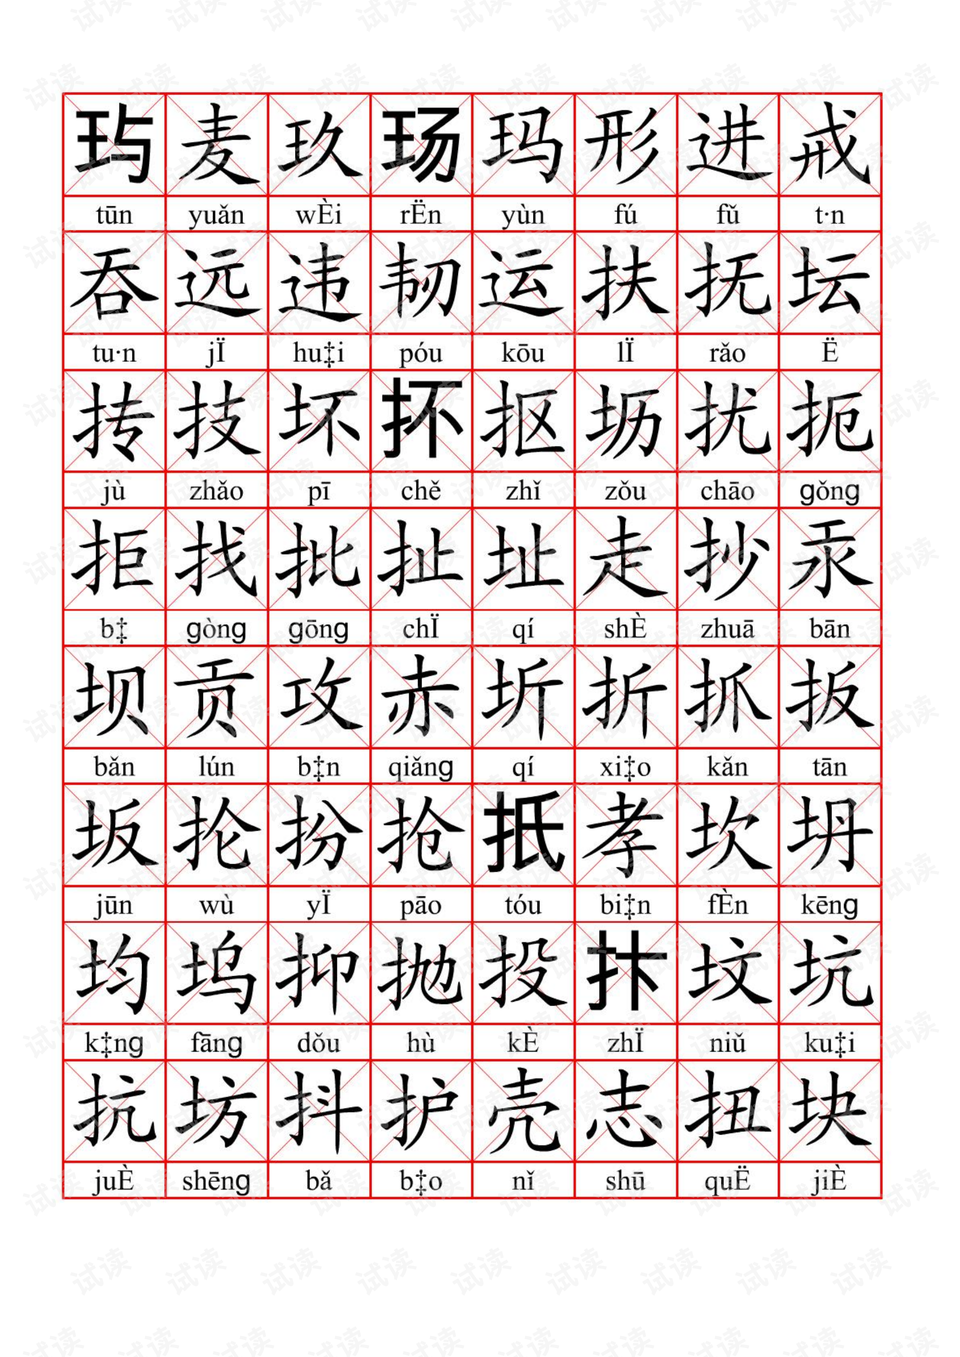 玙麦玖玚玛形进戒
tūn yuǎn wÈi rËn yùn fú fǔ t·n
吞远违韧运扶抚坛
tu·n jÏ hu‡i póu kōu lÏ rǎo Ë
抟技坏抔抠坜扰扼
jù zhǎo pī chě zhǐ zǒu chāo gǒng
拒找批扯址走抄汞
b‡ gòng gōng chÏ qí shÈ zhuā bān
坝贡攻赤圻折抓扳
bǎn lún b‡n qiǎng qí xi‡o kǎn tān
坂抡扮抢扺孝坎坍
jūn wù yÏ pāo tóu bi‡n fÈn kēng
均坞抑抛投抃坟坑
k‡ng fāng dǒu hù kÈ zhÏ niǔ ku‡i
抗坊抖护壳志扭块
juÈ shēng bǎ b‡o nǐ shū quË jiÈ
试读